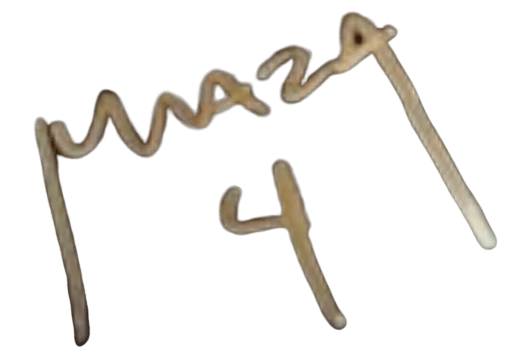 MAZA
4